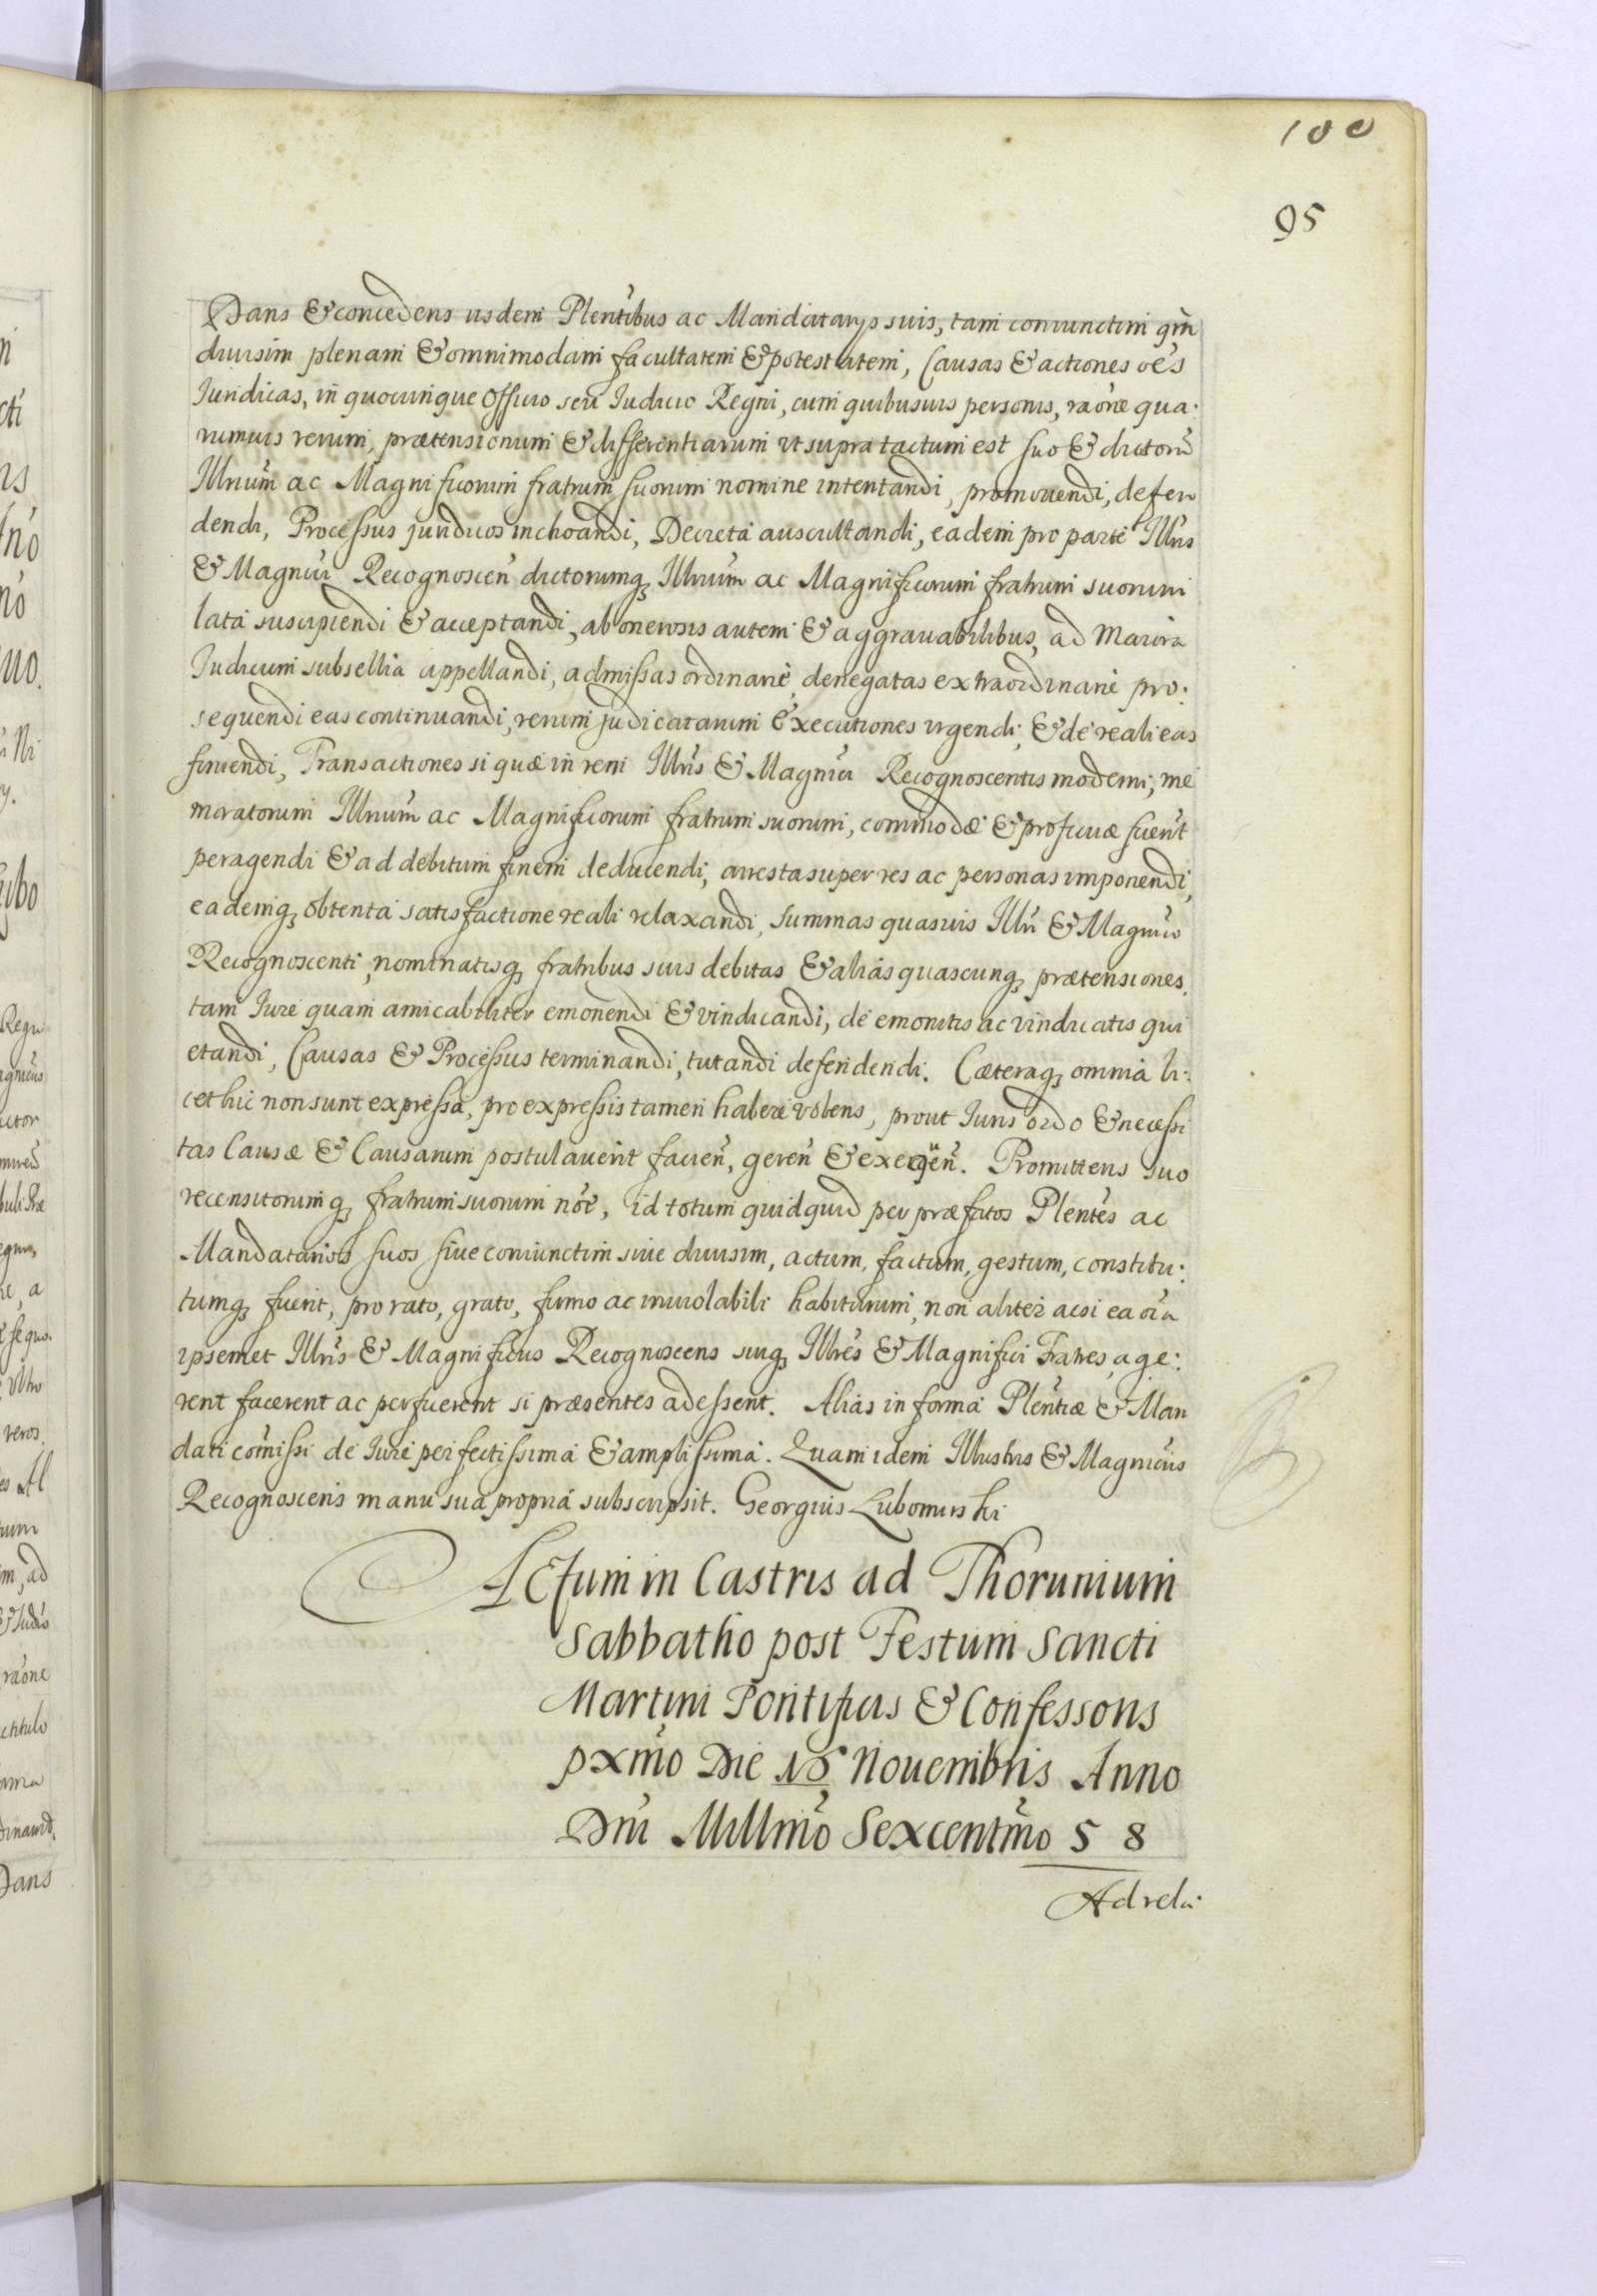 100
95
Dans & concedens iisdem Plentibus ac Mandatarijs suis, tam coniunctim qm
diuisim plenam & omnimodam facultatem & potestatem, Causas & actiones oes
Iuridicas, in quocunque Officio seu Iudicio Regni, cum quibusuis personis, raone qua:
rumuis rerum, prætensionum & differentiarum ut supra tactum est suo & dictorũ
Illriũm ac Magnificorum fratrum suorum nomine intentandi, promouendi, defen
dendi, Processus juridicos inchoandi, Decreta auscultandi, eadem pro parte Illris
& Magnici Recognoscen dictorumq Illriũm ac Magnificorum fratrum suorum
lata suscipiendi & acceptandi, ab onerosis autem & aggrauabilibus, ad Maiora
Iudicum subsellia appellandi, admissas ordinarie, denegatas extraordinarie pro:
sequendi eas continuandi, rerum judicatarum executiones urgendi, & de reali eas
finiendi, Transactiones si quæ in rem Illris & Magnici Recognoscentis moderni, me
moratorum Illriũm ac Magnificorum fratrum suorum, commodæ & proficuæ fuerit
peragendi & ad debitum finem deducendi, arresta super res ac personas imponendi,
eademq obtenta satisfactione reali relaxandi, Summas quasuis Illri & Magnico
Recognoscenti, nominatisq fratribus suis debitas & alias quascunq prætensiones,
tam Iure quam amicabiliter emonendi & vindicandi, de emonitis ac vindicatis qui
etandi, Causas & Processus terminandi, tutandi defendendi. Cæteraq omnia li:
cet hic non sunt expressa, pro expressis tamen habere volens, prout Iuris ordo & necessi
tas Causæ & Causarum postulauerit facien, geren & exeqen. Promittens suo
recensitorumq fratrum suorum noe, id totum quidquid per præfatos Plentes ac
Mandatarios suos siue coniunctim siue diuisim, actum, factum, gestum, constitu:
tumq fuerit, pro rato, grato, firmo ac inuiolabili habiturum, non aliter acsi ea oia
ipsemet Illris & Magnificus Recognoscens suiq Illres & Magnifici Fratres, age:
rent facerent ac perficerent si præsentes adessent. Alias in forma Plentiæ & Man
dati comissi de Iure perfectissima & amplissima. Quam idem Illustris & Magnicus
Recognoscens manu sua propria subscripsit. Georgius Lubomirski
Actum in Castris ad Thorunium
Sabbatho post Festum Sancti
Martini Pontificis & Confessoris
pxmo Die 16 Nouembris Anno
Dni Millmo Sexcentmo 58
Ad rela: